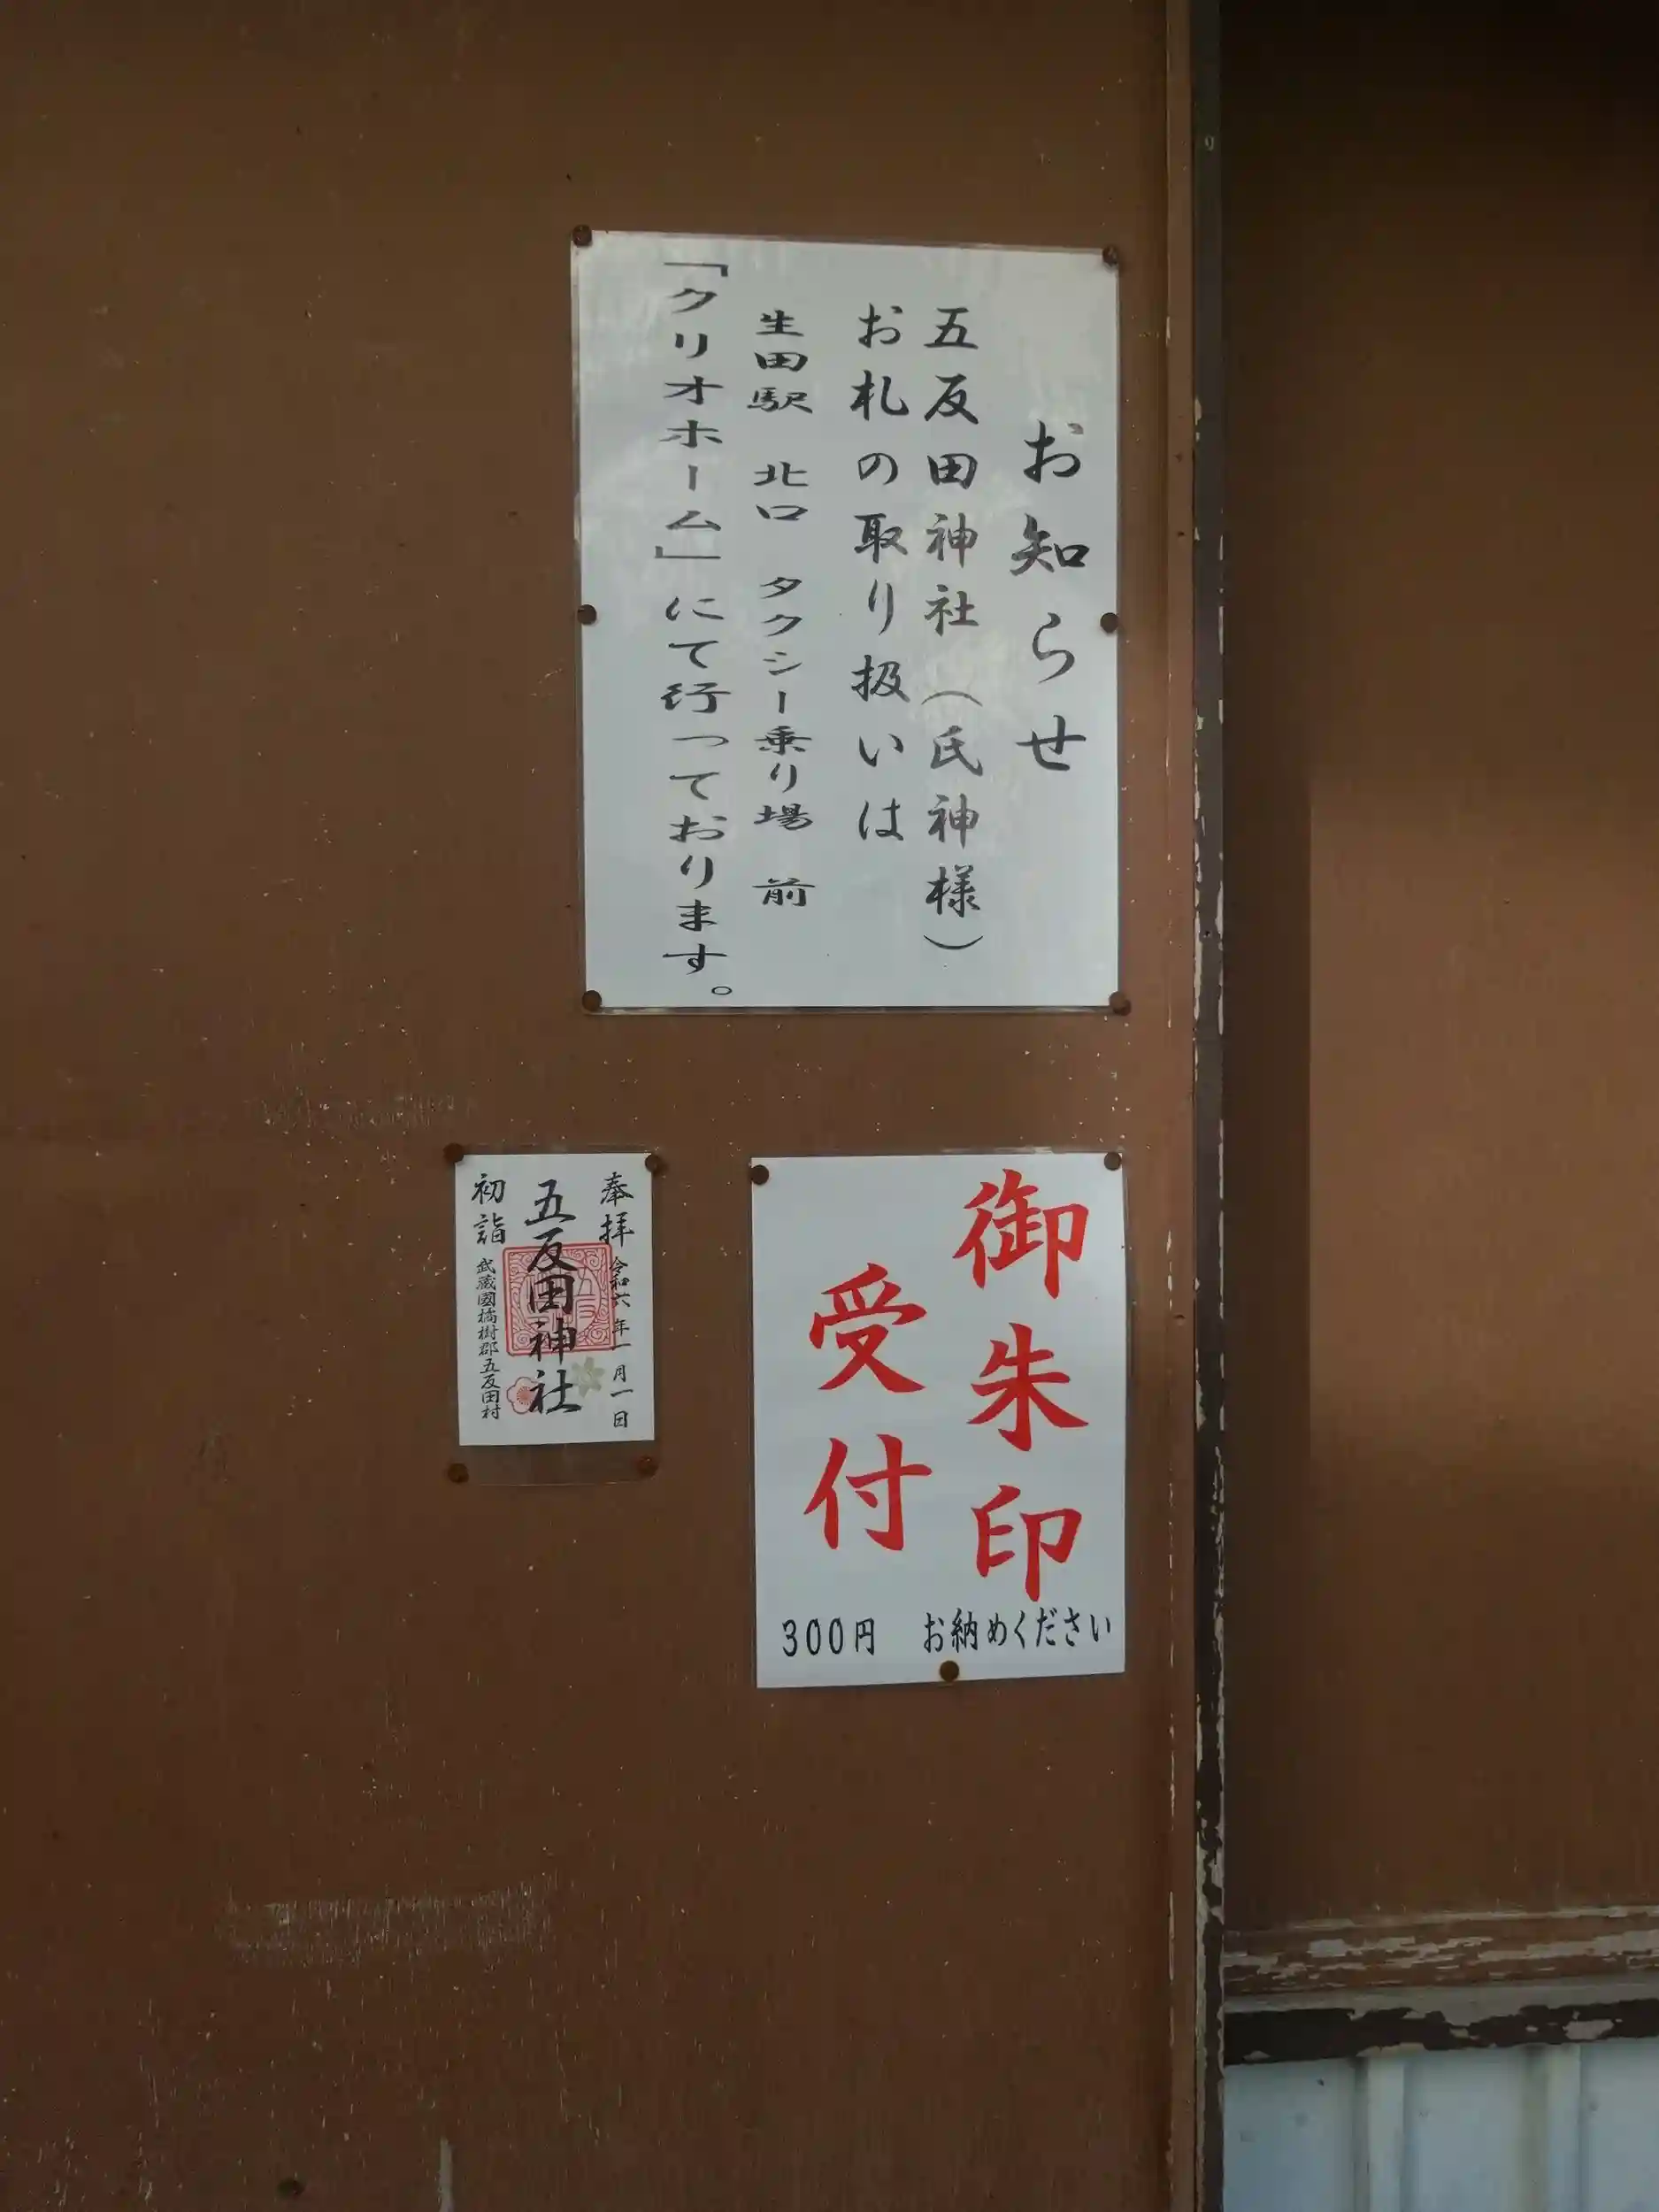 お知らせ
五反田神社（氏神様）
お札の取り扱いは
生田駅　北口　タクシー乗り場　前
「クリオホーム」にて行っております。
御朱印
受付
300円　お納めください
奉拝　令和六年一月一日
五反田神社
初詣　武蔵國橘樹郡五反田村